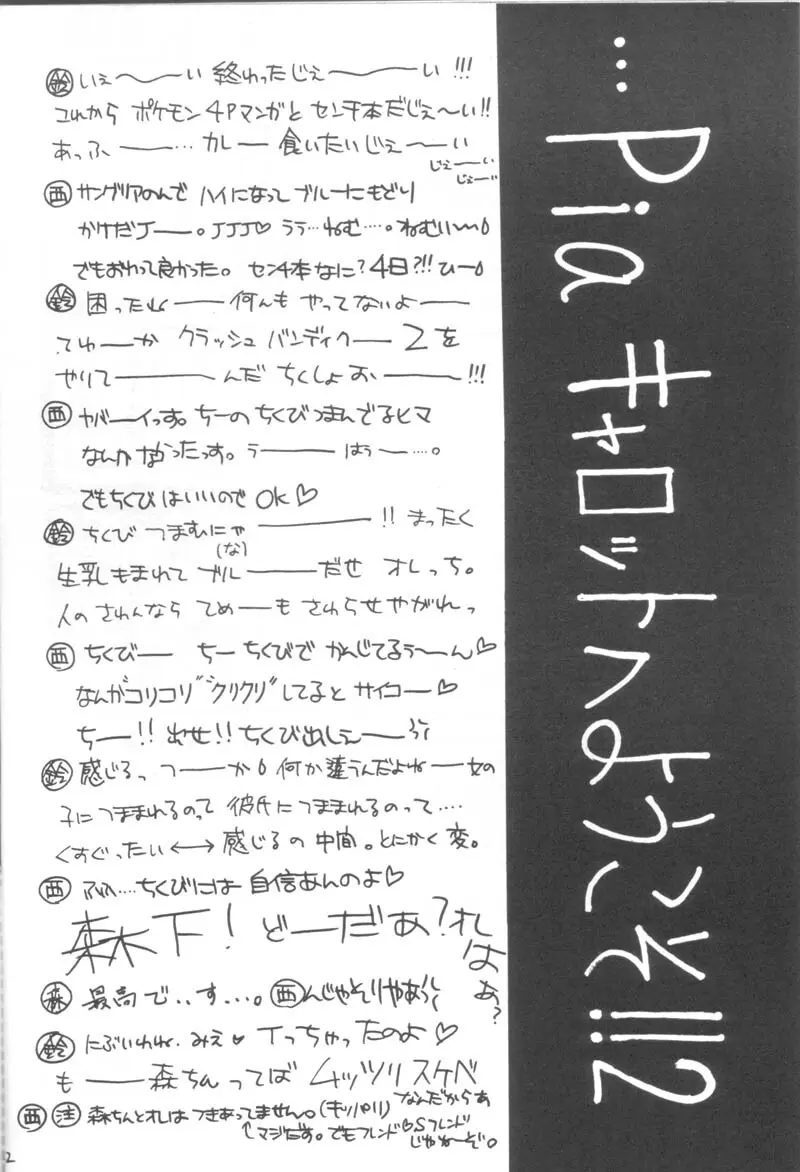 …Piaキャロットへようこそ!!2
鈴 いぇ〜〜い 終わったじぇ〜〜い!!!
これから ポケモン4Pマンガと センチ本だじぇ〜い!!
あっふ——… カレー 食いたいじぇ〜〜い
じぇ〜〜い
じぇ〜い
西 サングリアのんで ハイになって ブルーにもどり
かけだJ——。JJJ♡ ララ…ねむ…。ねむい〜〜
でもおわって良かった。センチ本なに?4日?!!ひー
鈴 困ったね—— 何んも やってないよ——
てゆ——か クラッシュ バンディクー 2を
やりて————んだ ちくしょお———!!!
西 ヤバ—イっす。ちーの ちくびつまんでるヒマ
なんか なかったっす。う—— はぅ——…。
でもちくび はいいので OK♡
鈴 ちくび つまむにゃ————!! まったく
(な)
生乳もまれて ブル———だぜ オレっち。
人の さわんなら てめ——も さわらせやがれっ
西 ちくび—— ちー ちくびで かんじてるぅ〜〜ん♡
なんかコリコリ クリクリ してると サイコー♡
ち——!! 出せ!! ちくび出しえ——
鈴 感じるっ つ——か 何か違うんだよね——女の
子につままれるのって 彼氏につままれるのって….
くすぐったい ←→ 感じるの 中間。とにかく変。
西 ふふ….ちくびには 自信あんのよ♡
森木下! ど—だぁ?オレ
はぁ?
森 最高で..す…。西 んじゃそりゃあう
鈴 にぶいわね. みえ♥ Tっちゃったのよ♡
も——森ちんってば ムッツリ スケベ
なんだからぁ
西 注 森ちんとオレは つきあってません。(キッパリ)
↑マジだす。でもフレンド♡Sフレンド
じゃねーぞ。
2